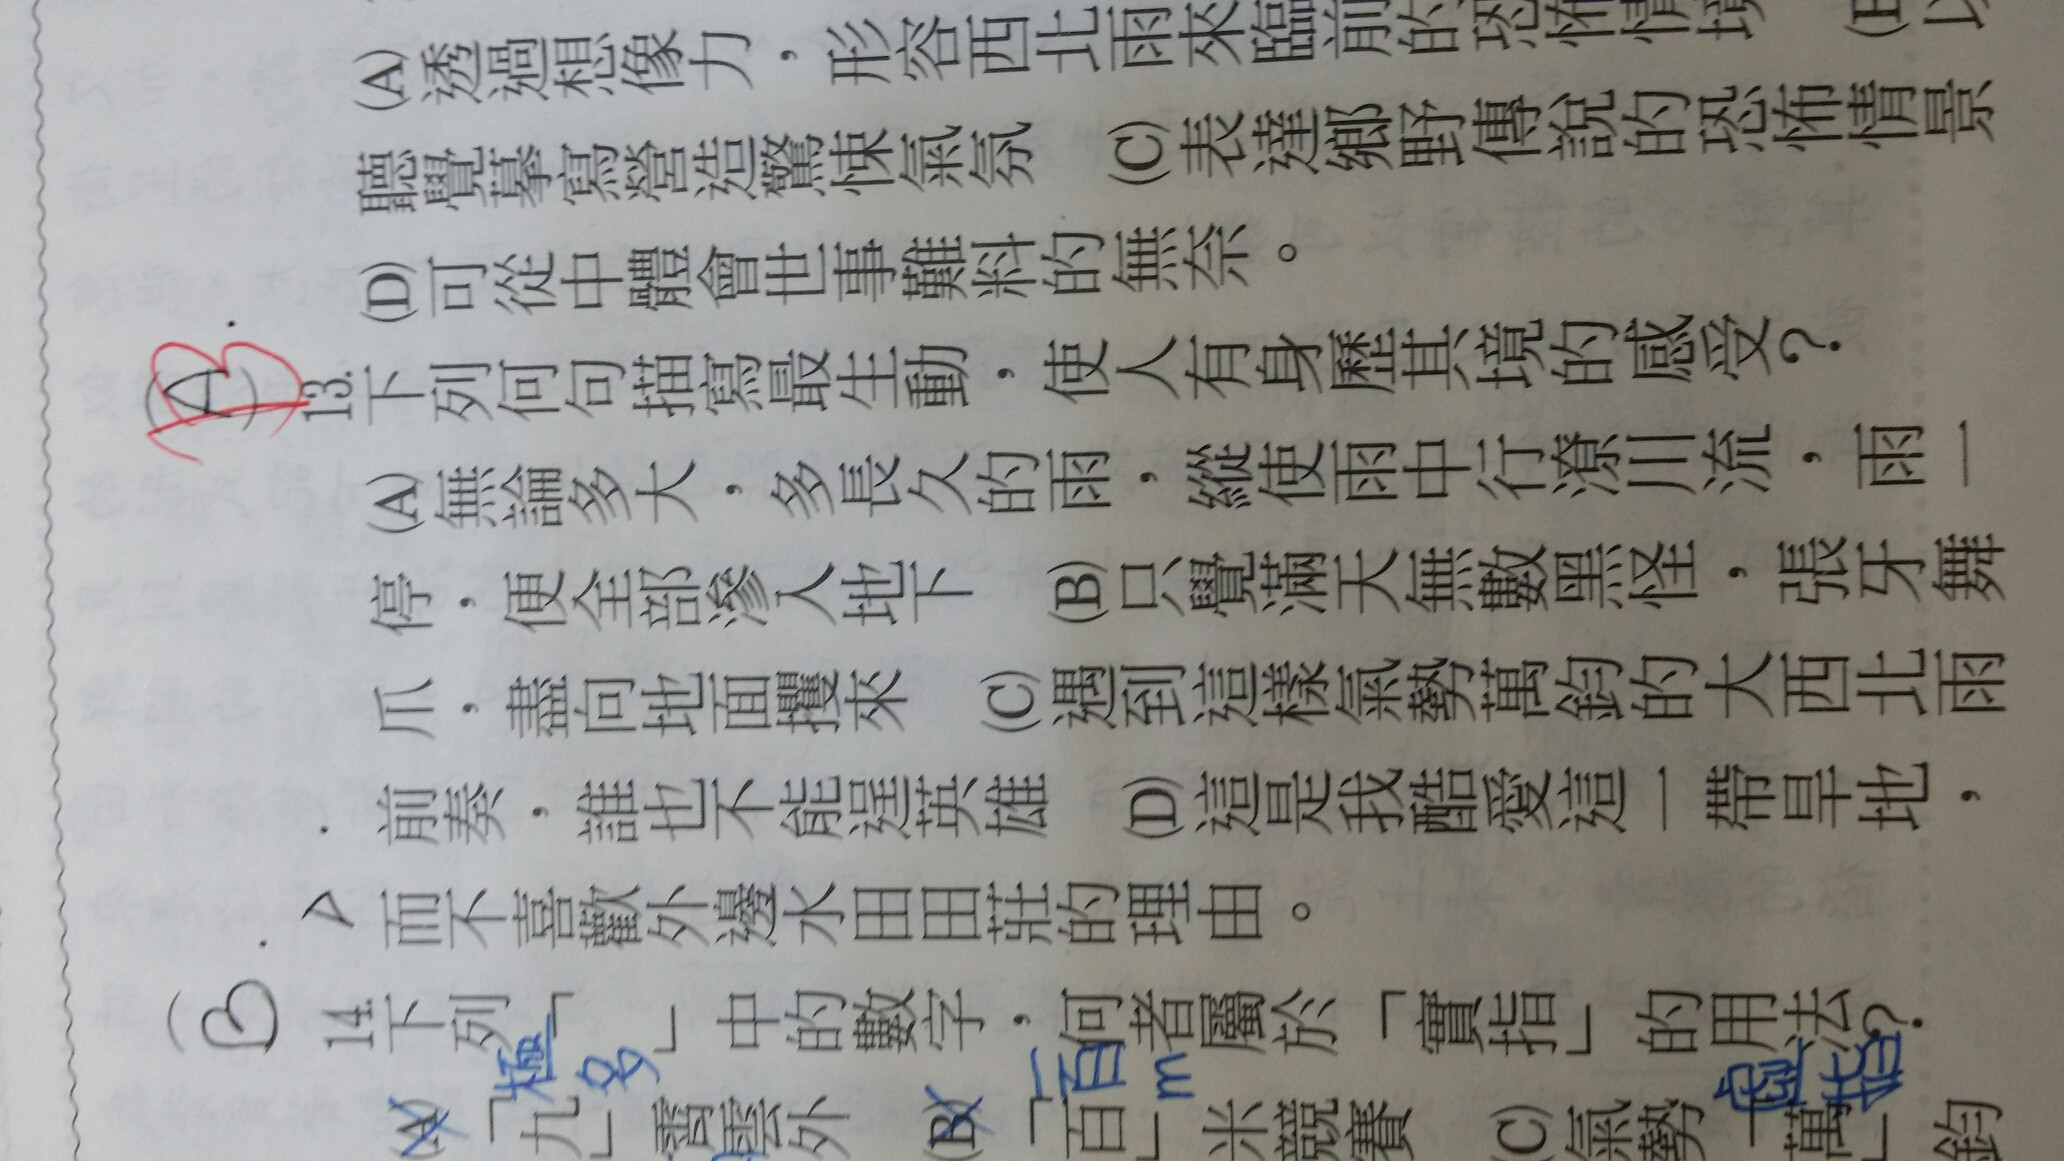 (A)透過想像力，形容西北雨來臨前的恐怖情境 (B)以
聽覺摹寫營造驚悚氣氛 (C)表達鄉野傳說的恐怖情景
(D)可從中體會世事難料的無奈。
(A) B 13.下列何句描寫最生動，使人有身歷其境的感受？
(A)無論多大，多長久的雨，縱使雨中行潦川流，雨一
停，便全部滲入地下 (B)只覺滿天無數黑怪，張牙舞
爪，盡向地面攫來 (C)遇到這樣氣勢萬鈞的大西北雨
前奏，誰也不能逞英雄 (D)這是我酷愛這一帶旱地，
而不喜歡外邊水田田莊的理由。
(B 14.下列「 」中的數字，何者屬於「實指」的用法？
極多 一百m 虛指
(A)「九」霄雲外 (B)「百」米競賽 (C)氣勢「萬」鈞